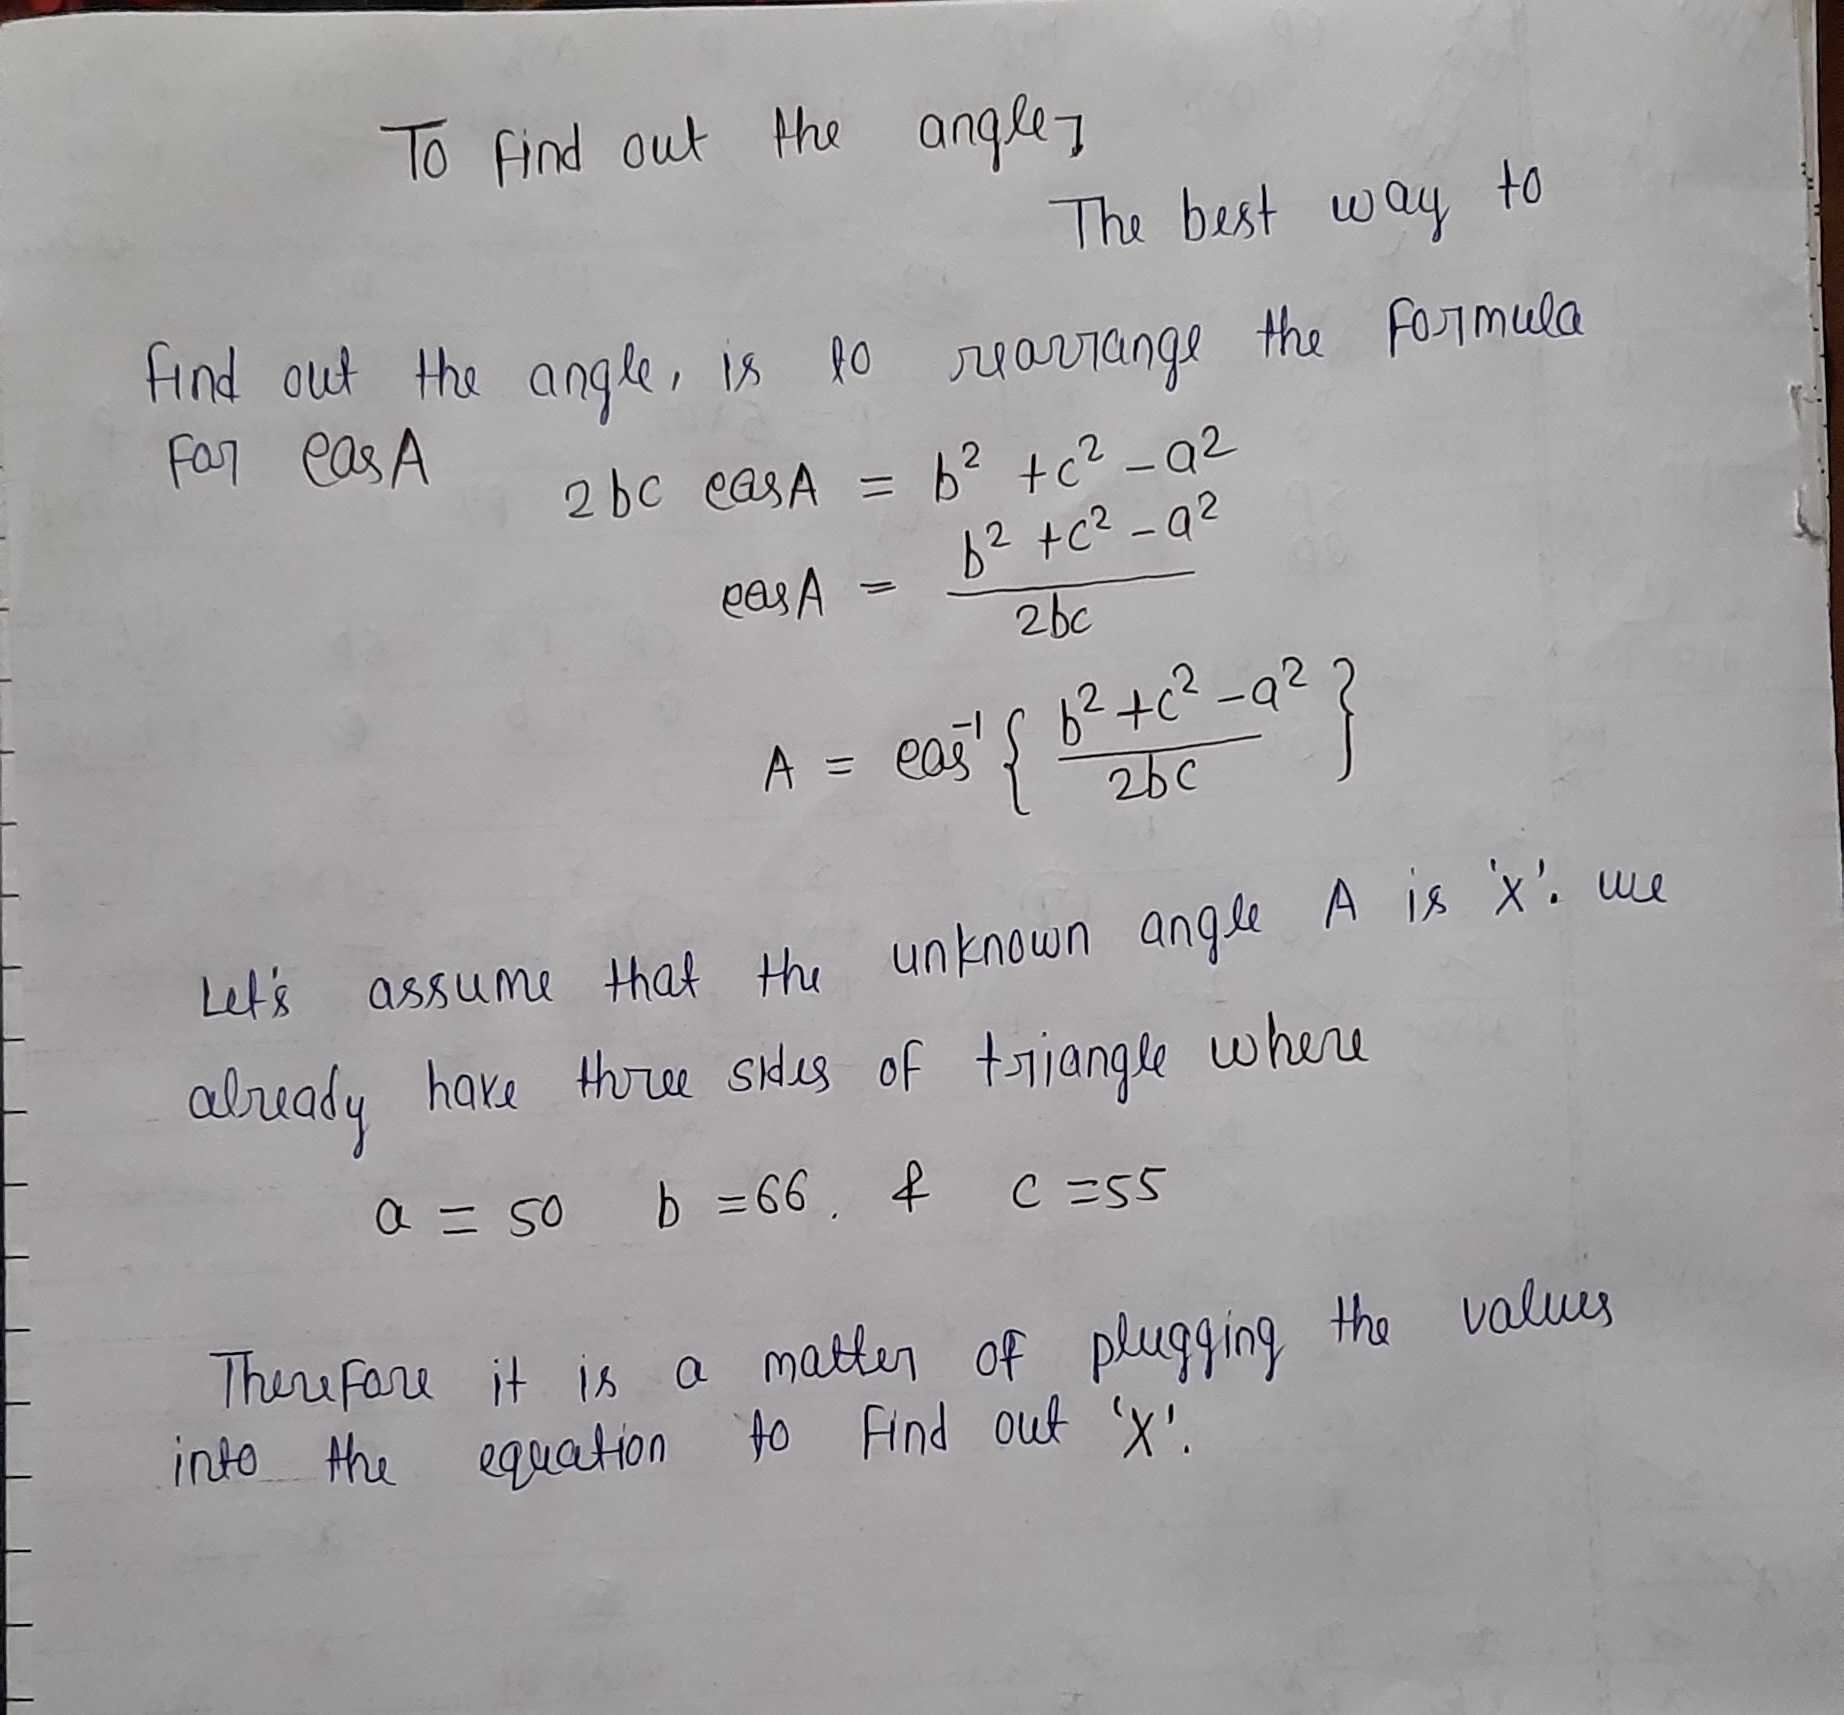 To find out the angle,
The best way to
find out the angle, is to rearrange the formula
For cos A
2bc cos A = b² + c² - a²
cos A = (b² + c² - a²) / 2bc
A = cos⁻¹ { (b² + c² - a²) / 2bc }
Let's assume that the unknown angle A is 'x'. we
already have three sides of triangle where
a = 50 b = 66. & c = 55
Therefore it is a matter of plugging the values
into the equation to find out 'x'.